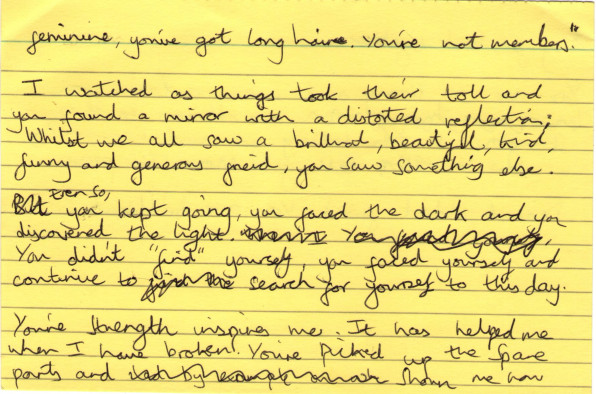 feminine, you've got long hair. You're not members."
I watched as things took their toll and
you found a mirror with a distorted reflection;
Whilst we all saw a brilliant, beautiful, kind,
funny and generous friend, you saw something else.
But even so,
you kept going, you faced the dark and you
discovered the light. You
You didn't "find" yourself, you faced yourself and
continue to search for yourself to this day.
You're strength inspires me. It has helped me
when I have broken. You're picked up the spare
parts and shown me how